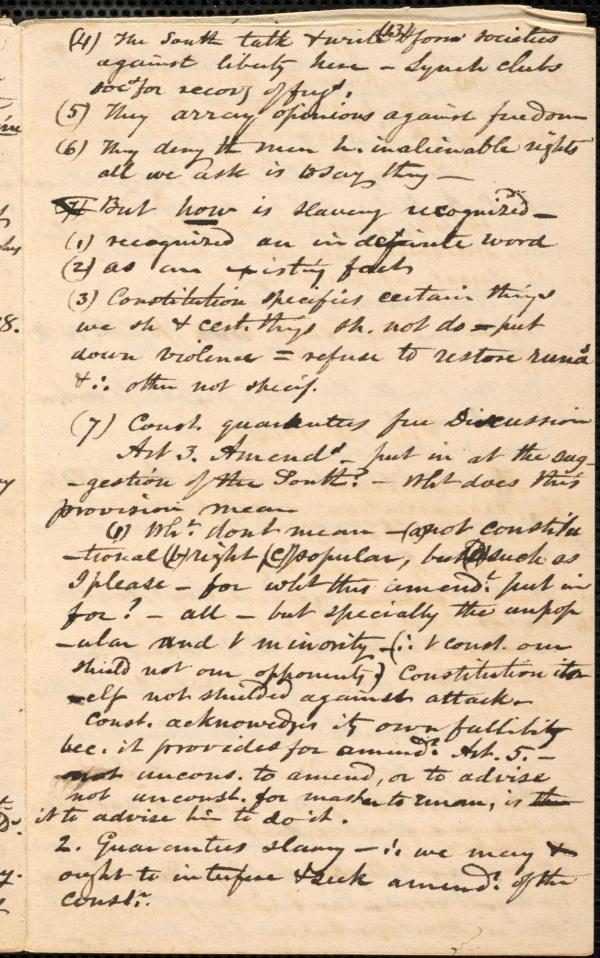 (4) The South talk & write & form societies
against liberty here – Lynch clubs
soc. for recov'g of fug's.
(5) They array opinions against freedom
(6) They deny th men h. inalienable rights
all we ask is to say they —
But how is slavery recognized —
(1) recognized an indefinite word
(2) as an existing fact
(3) Constitution specifies certain things
we sh & cert. thgs sh. not do = put
down violence = refuse to restore
& ∴ other not specif.
(7) Const. guarantees free Discussion
Art 3. Amend – put in at the sug-
-gestion of the South? – Wht does this
provision mean
(1) Wht dont mean – (a) not constitu
-tional (b) right (c) popular, but such as
I please – for wht this amend.t put in
for? – all – but specially the unpop
-ular and minority – (∴ const. our
shield not our opponents) Constitution its
-elf not shielded against attack.
Const. acknowedges its own fallibility
bec. it provides for amend.t Art. 5. –
not uncons. to amend, or to advise
not unconst. for master to eman, is
it to advise him to do it.
2. Guarantees slavery – ∴ we may &
ought to interfere & seek amend.t of the
const.